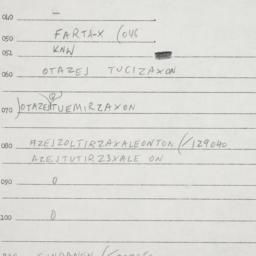 040 —
FARTA-X (046
050
051 KNW
060 OTAZEJ TUCIZAXON
070 )OTAZEJTUEMIRZAXON
080 AZEJZOLTIRZAXALEONTON (/129040
AZEJTUTIRZSXALE ON
090 0
100 0